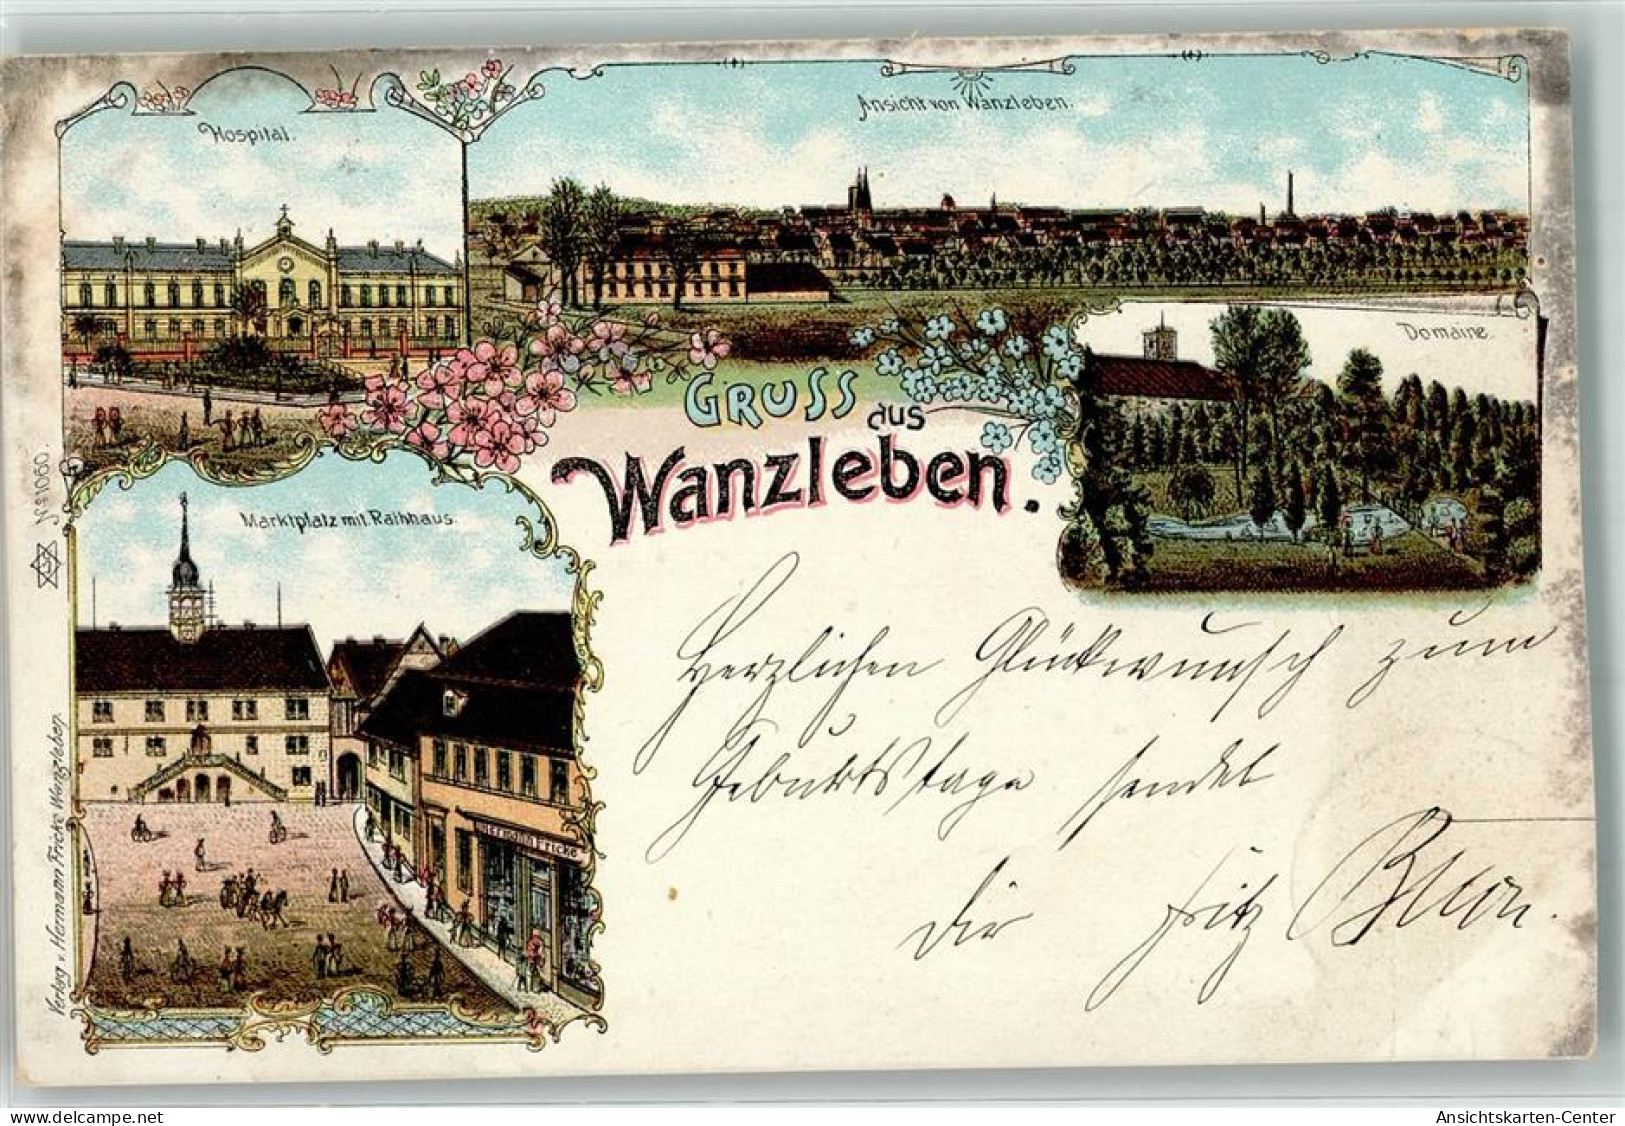 Hospital.
Ansicht von Wanzleben.
Domaine.
GRUSS
aus
Wanzleben.
Marktplatz mit Rathhaus.
Hermann Fricke
No 1060.
Verlag v. Hermann Fricke Wanzleben.
Herzlichen Glückwunsch zum
Geburtstage sendet
Dir Fritz
www.delcampe.net
Ansichtskarten-Center